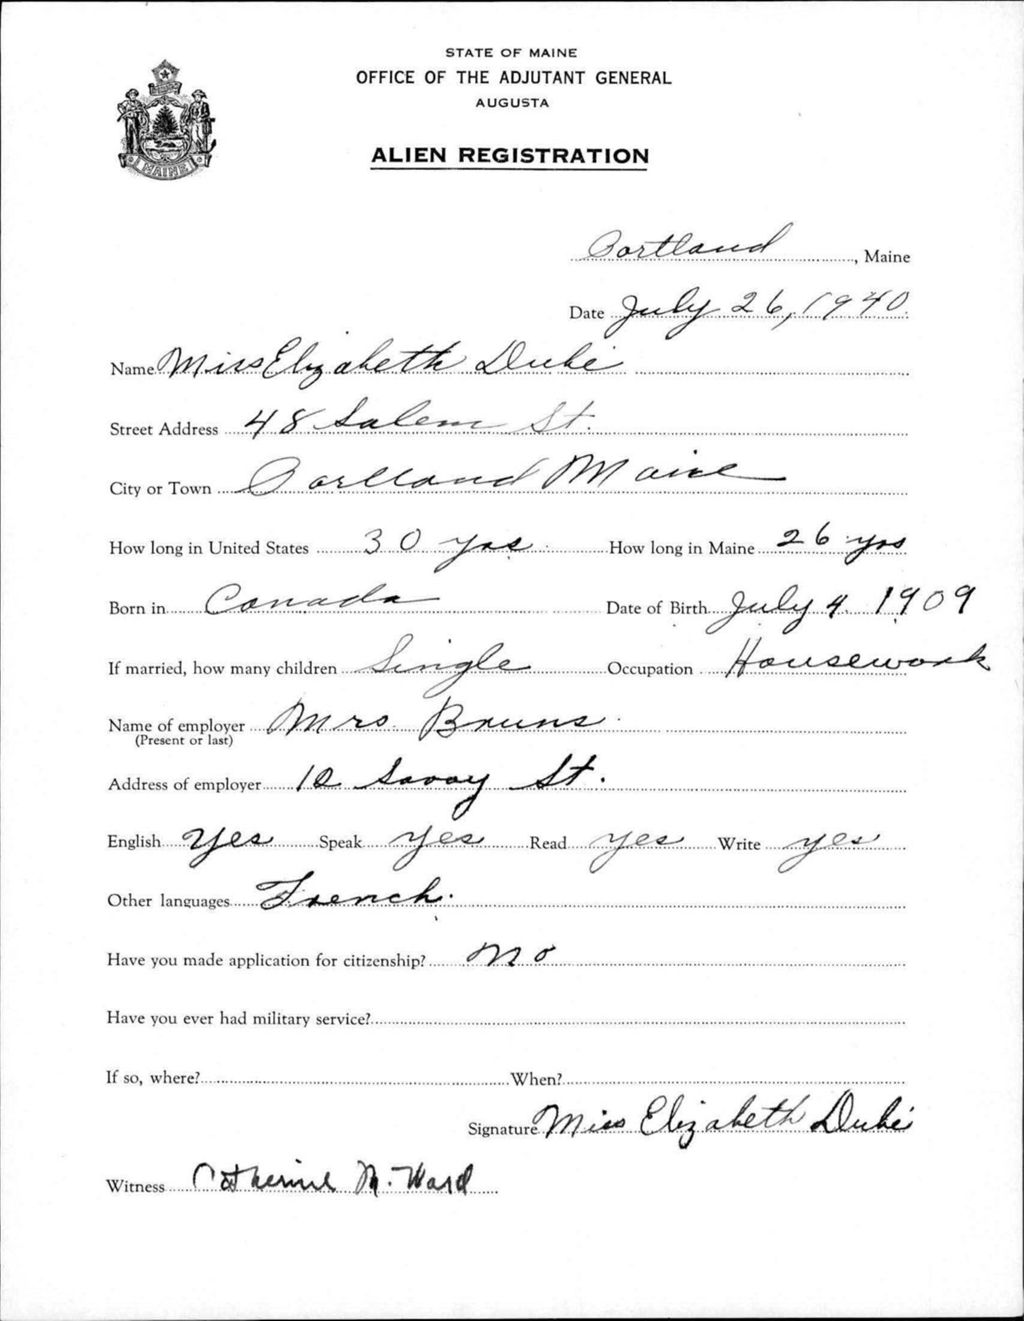 STATE OF MAINE
OFFICE OF THE ADJUTANT GENERAL
AUGUSTA
ALIEN REGISTRATION
MAINE
Portland, Maine
Date July 26, 1940
Name Miss Elizabeth Dubé
Street Address 48 Salem St.
City or Town Portland Maine
How long in United States 30 yrs. How long in Maine 26 yrs
Born in Canada Date of Birth July 4. 1909
If married, how many children Single Occupation Housework
Name of employer Mrs. Bruns
(Present or last)
Address of employer 10 Savoy St.
English Yes Speak yes Read yes Write yes
Other languages French.
Have you made application for citizenship? No
Have you ever had military service?
If so, where? When?
Signature Miss Elizabeth Dubé
Witness Catherine M. Ward